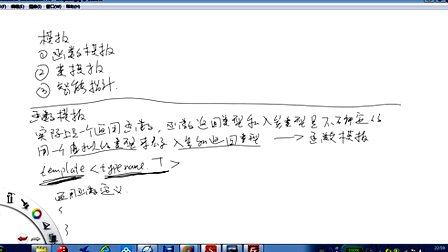 模板
① 函数模板
② 类模板
③ 智能指针
函数模板
实际上是一个通用函数，函数返回类型和入参类型是不确定的
用一个虚拟的类型来表示入参和返回类型 → 函数模板
template <typename T>
通用函数定义
{
}